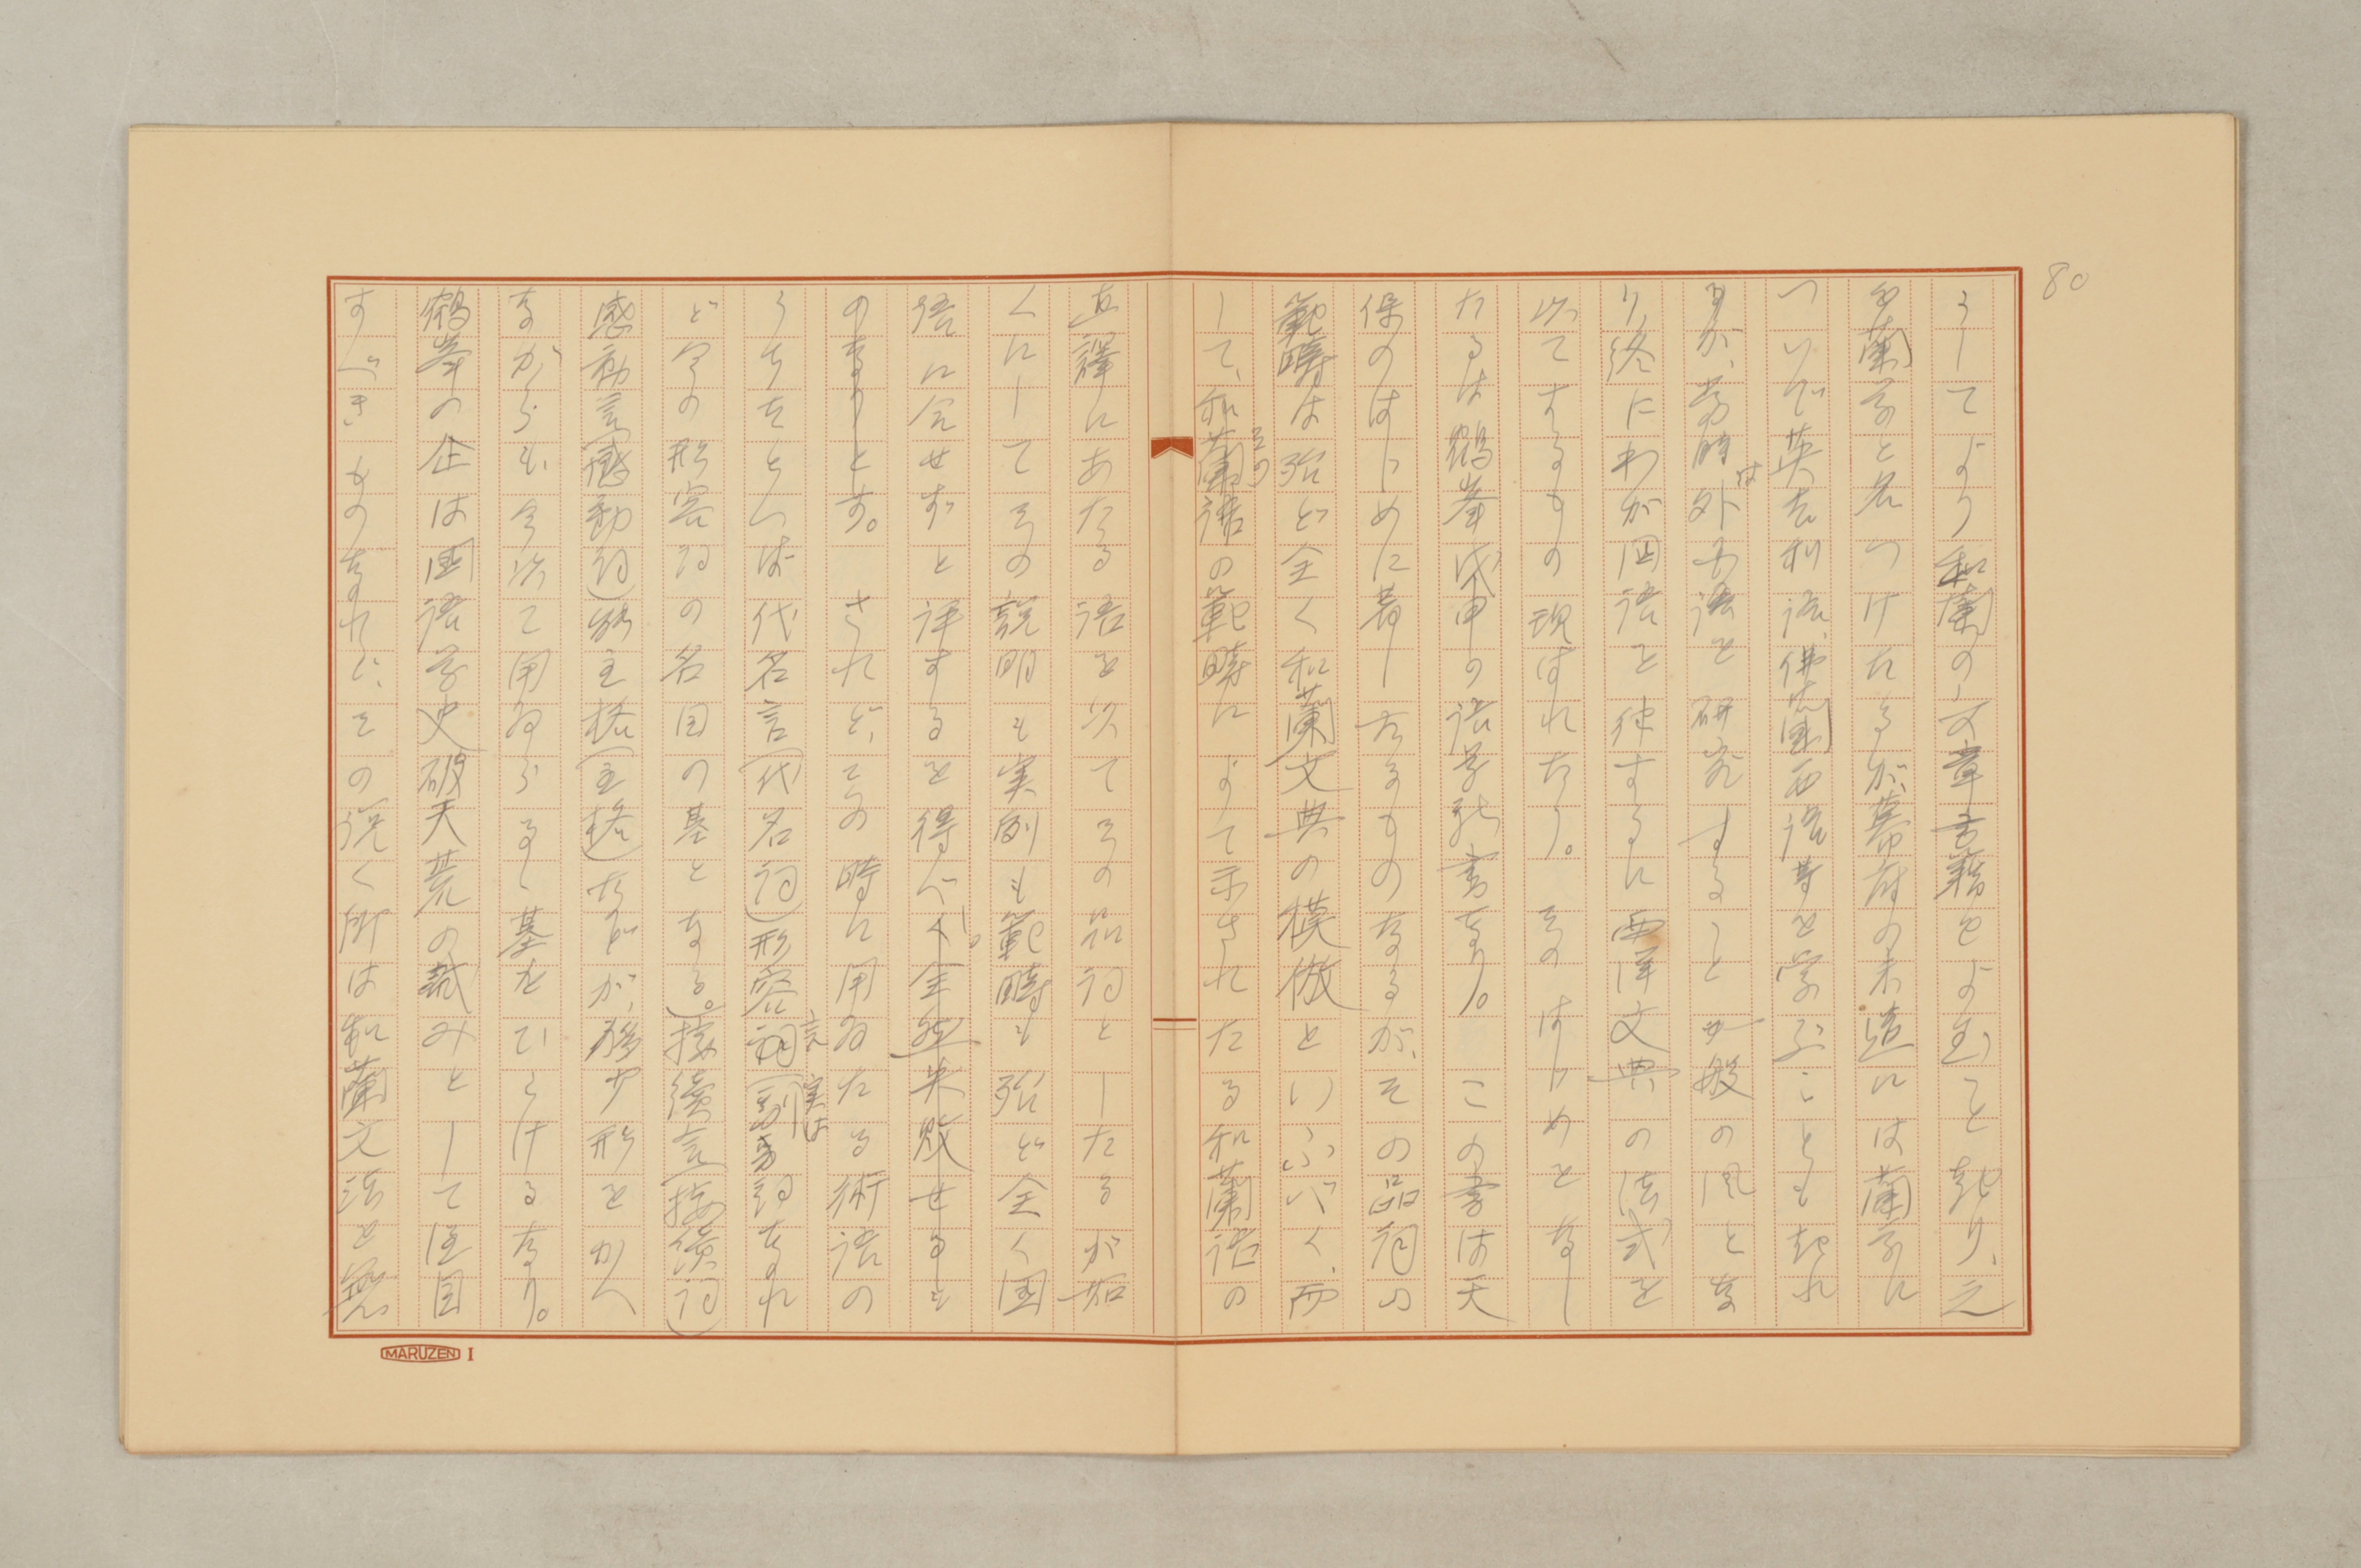 80
うしてより和蘭の文章書籍をよむこと起り、之
を蘭学と名つけたるが、幕府の末造には蘭学に
ついで英吉利語、佛蘭西語等を学ぶことも起れ
るが、当時は外国語を研究すること一般の風とな
り、終にわが国語を律するに西洋文典の法式を
以てするもの現はれたり。そのはじめとなし
たるは鶴峯戊申の語学新書なり。この書は天
保のはじめに著したるものなるが、その品詞の
範疇は殆ど全く和蘭文典の模倣といふべく、而
して、その和蘭語の範疇によて示されたる和蘭語の
直譯にあたる語を以てその品詞としたるが如
くにしてその説明も実例も範疇も殆ど全く国
語に合せずと評するを得べし。く全然失敗せるも
のなりとす。されど、この時に用ゐたる術語の
うちたとへば代名言(代名詞)形容言(実は副詞)なれ
ど今の形容詞の名目の基となる。)接續言(接續詞)
感動言(感動詞)能主格(主格)などが、多少形をかへ
ながらも今以て用ゐらるゝ基をひらけるなり。
鶴峯の企は国語学史破天荒の試みとして注目
すべきものなれど、その説く所は和蘭文法を無
MARUZEN I